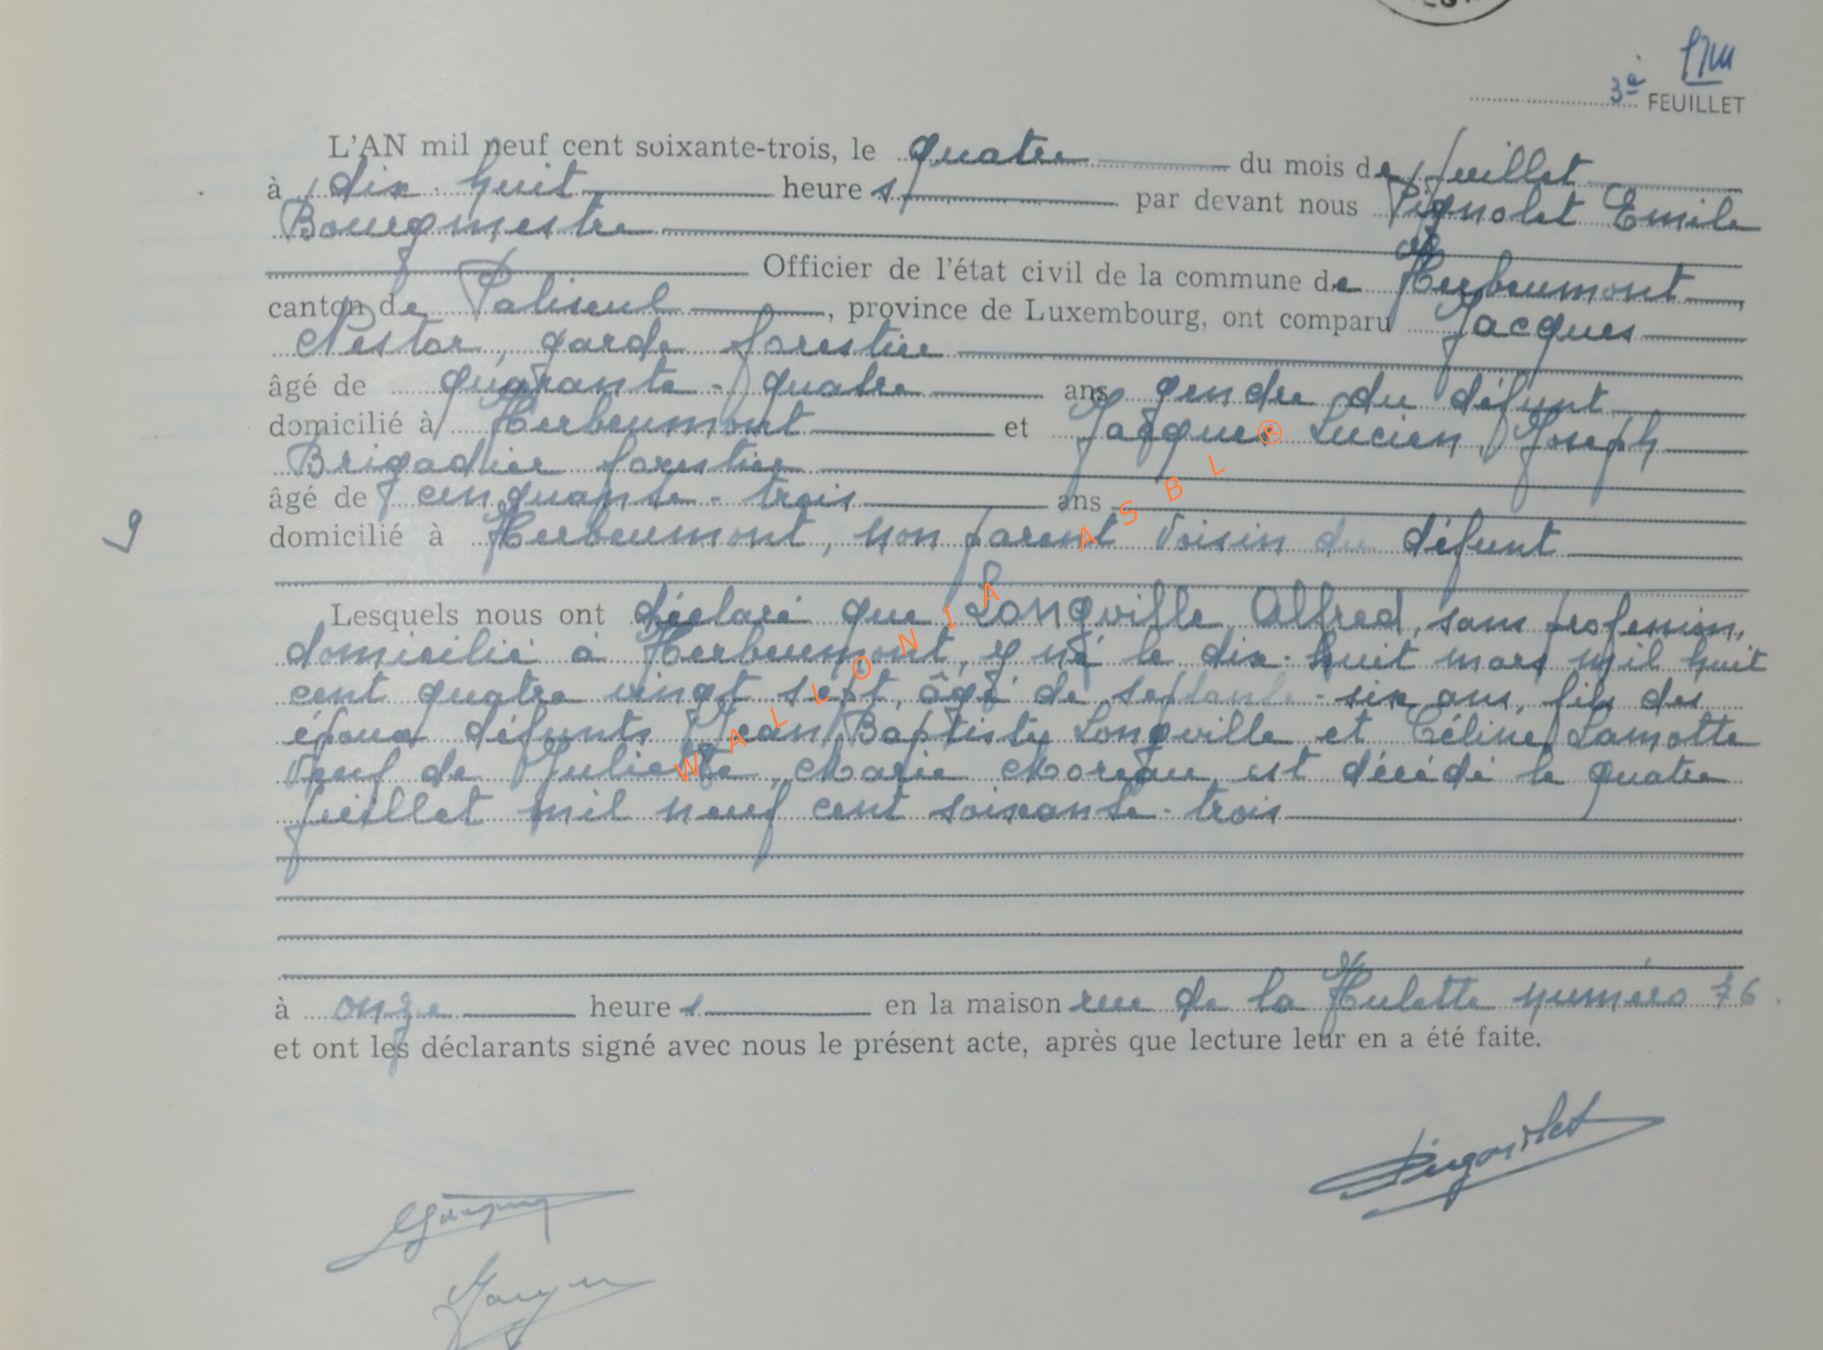 3e FEUILLET
L'AN mil neuf cent soixante-trois, le quatre du mois de juillet
à dix-huit heures par devant nous Pignolet Emile
Bourgmestre
Officier de l'état civil de la commune de Herbeumont
canton de Paliseul, province de Luxembourg, ont comparu Jacques
Nestor, garde forestier
âgé de quarante-quatre ans gendre du défunt
domicilié à Herbeumont et Jacques Lucien, Joseph
Brigadier forestier
âgé de cinquante-trois ans
9
domicilié à Herbeumont, non parent voisin du défunt
Lesquels nous ont déclaré que Longville Alfred, sans profession,
domicilié à Herbeumont, y né le dix-huit mars mil huit
cent quatre vingt sept, âgé de septante-six ans, fils des
époux défunts Jean Baptiste Longville et Céline Lamotte
Veuf de Juliette, Marie Moreau, est décédé le quatre
juillet mil neuf cent soixante-trois
à onze heures en la maison rue de la Hulette numéro 76.
et ont les déclarants signé avec nous le présent acte, après que lecture leur en a été faite.
WALLONIA ASBL®